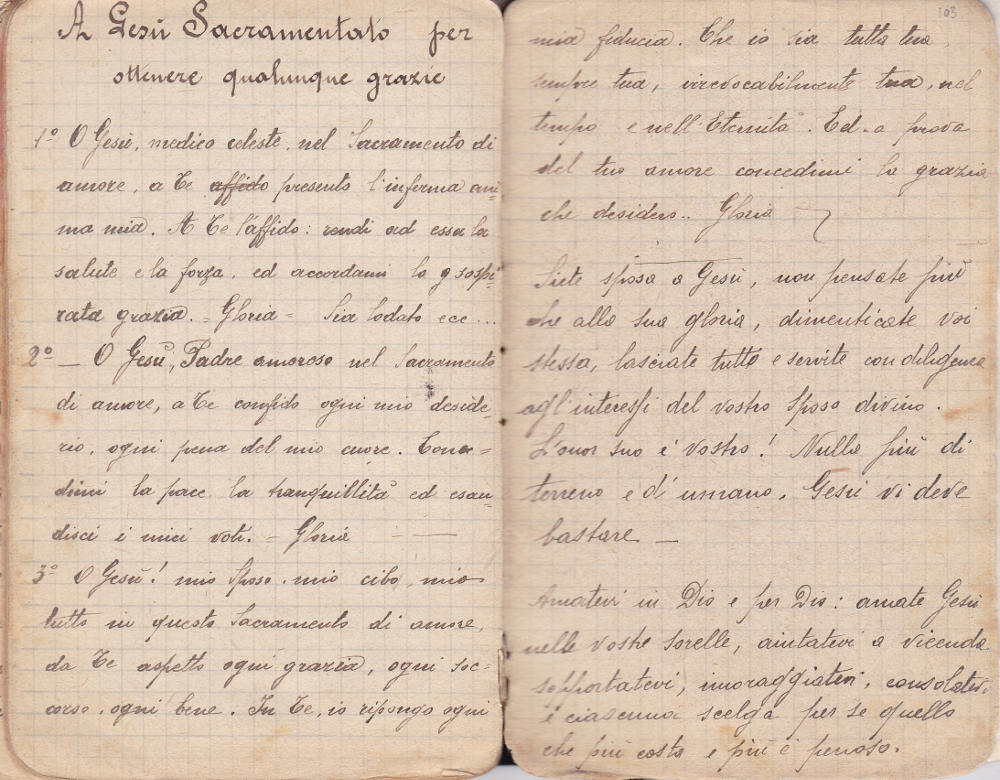 A Gesù Sacramentato per
ottenere qualunque grazie
1º O Gesù, medico celeste, nel Sacramento di
amore, a Te affido presento l'inferma ani=
ma mia. A Te l'affido: rendi ad essa la
salute e la forza, ed accordami la sospi=
rata grazia. = Gloria = Sia lodato ecc...
2º — O Gesù, Padre amoroso nel Sacramento
di amore, a Te confido ogni mio deside=
rio, ogni pena del mio cuore. Conce=
dimi la pace, la tranquillità ed esau=
disci i miei voti. = Gloria — —
3º O Gesù! mio Sposo, mio cibo, mio
tutto in questo Sacramento di amore,
da Te aspetto ogni grazia, ogni soc=
corso, ogni bene. In Te, io ripongo ogni
103
mia fiducia. Che io sia tutta tua,
sempre tua, irrevocabilmente tua, nel
tempo e nell'Eternità. Ed a prova
del tuo amore concedimi la grazia
che desidero.. Gloria —
Siete sposa a Gesù, non pensate più
che alla sua gloria, dimenticate voi
stessa, lasciate tutto e servite con diligenza
agl'interessi del vostro Sposo divino.
L'onor suo è vostro! Nulla più di
terreno e di umano. Gesù vi deve
bastare —
Amatevi in Dio e per Dio: amate Gesù
nelle vostre sorelle, aiutatevi a vicenda
sopportatevi, incoraggiatevi, consolatevi,
e ciascuna scelga per se quello
che più costa e più è penoso.